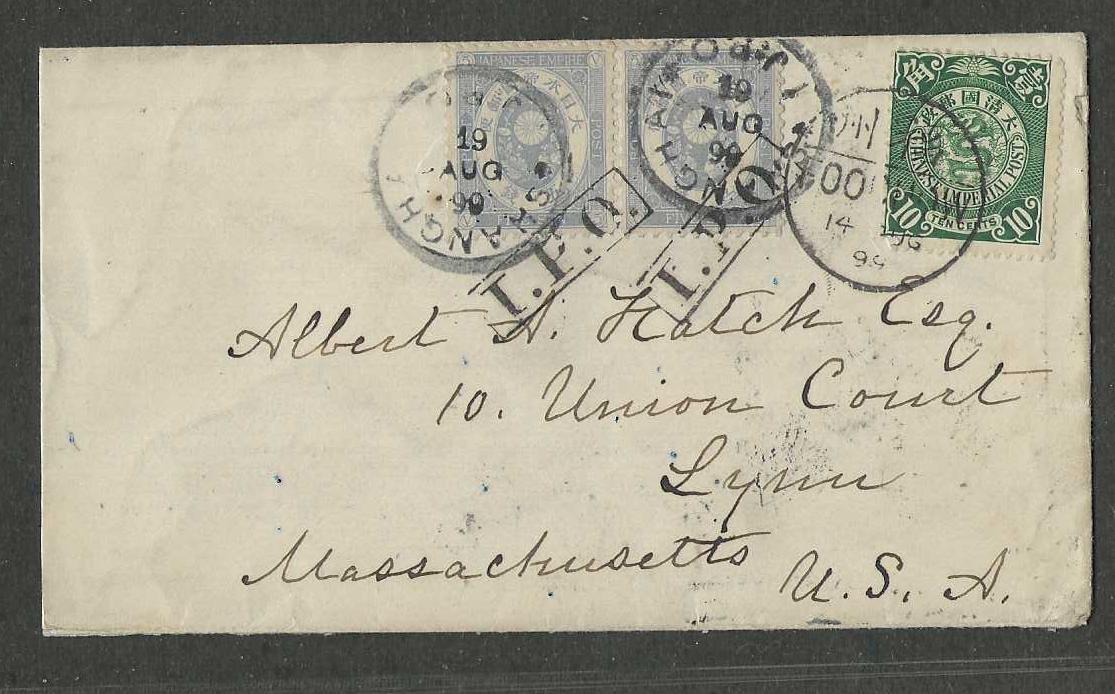 JAPANESE EMPIRE
大日本帝國
POST
I.J.P.O
SHANGHAI
19
AUG
99
I.J.P.O
SHANGHAI
19
AUG
99
I.P.O.
I.P.O.
州
14
99
角 壹
大清國郵政
CHINESE IMPERIAL POST
10 TEN CENTS 10
Albert A. Hatch Esq.
10. Union Court
Lynn
Massachusetts
U.S.A.